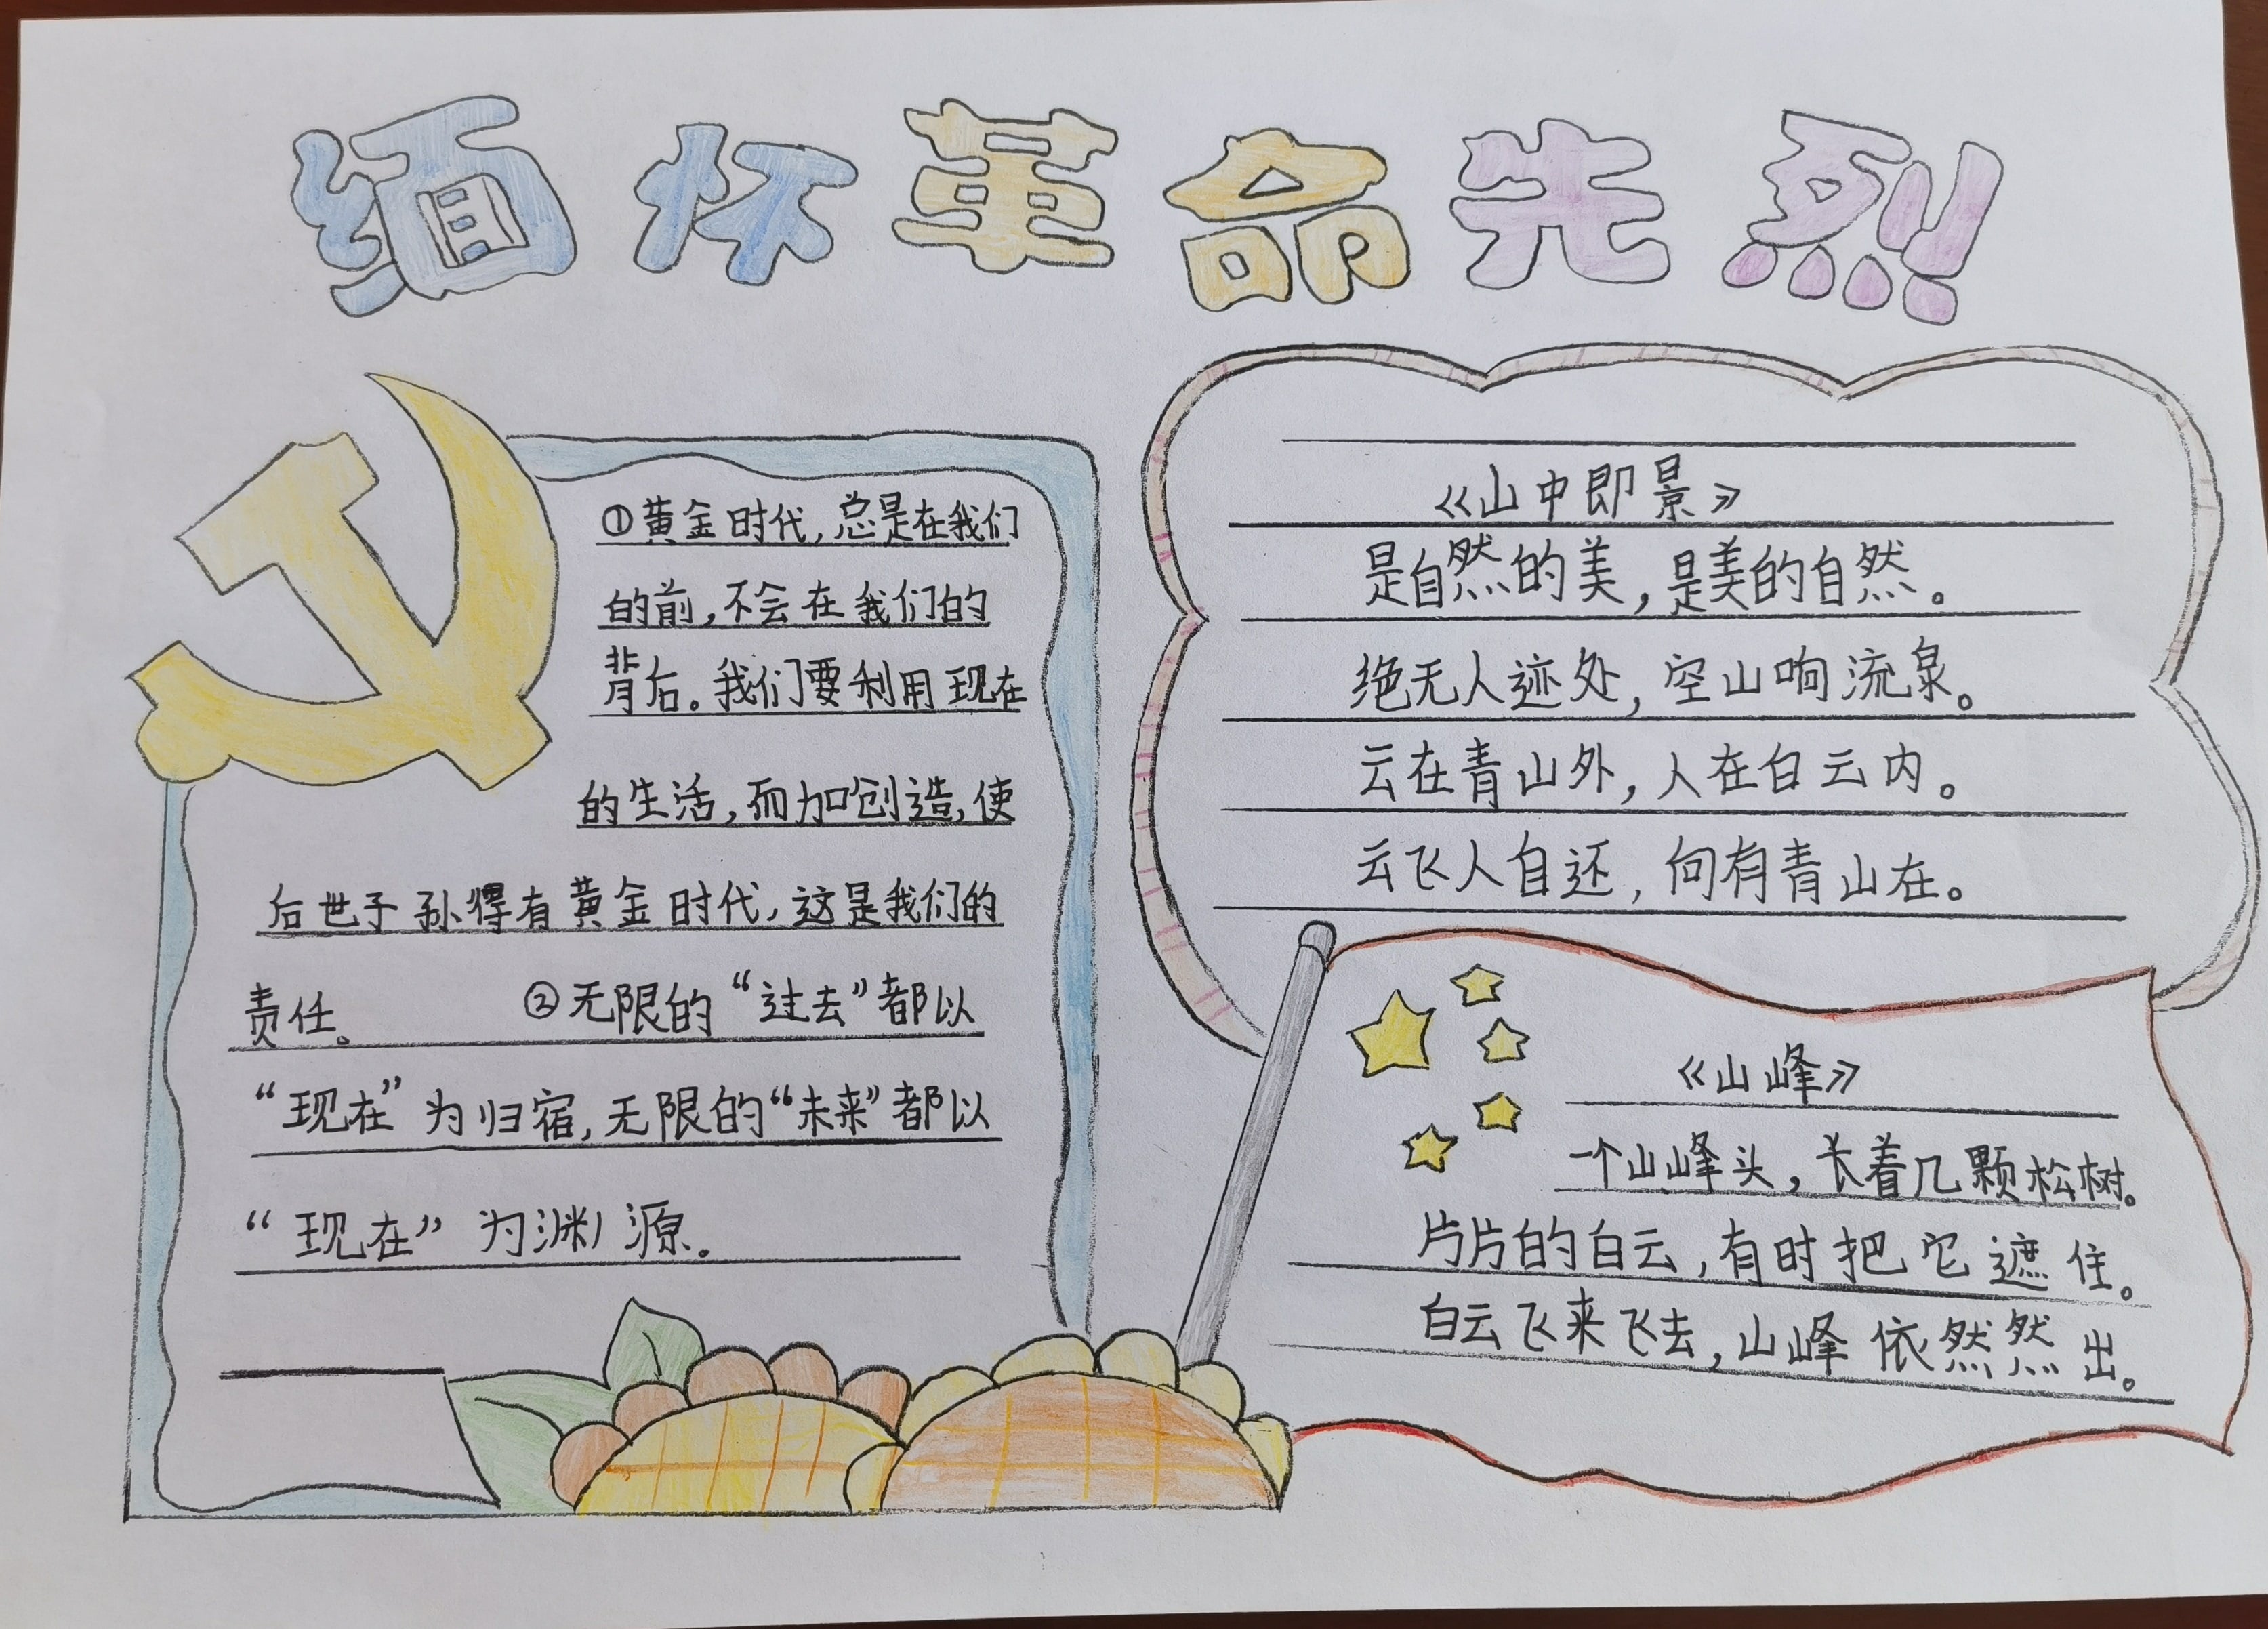 缅怀革命先烈
①黄金时代,总是在我们
的前,不会在我们的
背后。我们要利用现在
的生活,而加创造,使
后世子孙得有黄金时代,这是我们的
责任。 ②无限的“过去”都以
“现在”为归宿,无限的“未来”都以
“现在”为渊源。
《山中即景》
是自然的美,是美的自然。
绝无人迹处,空山响流泉。
云在青山外,人在白云内。
云飞人自还,向有青山在。
《山峰》
一个山峰头,长着几颗松树。
片片的白云,有时把它遮住。
白云飞来飞去,山峰依然然出。